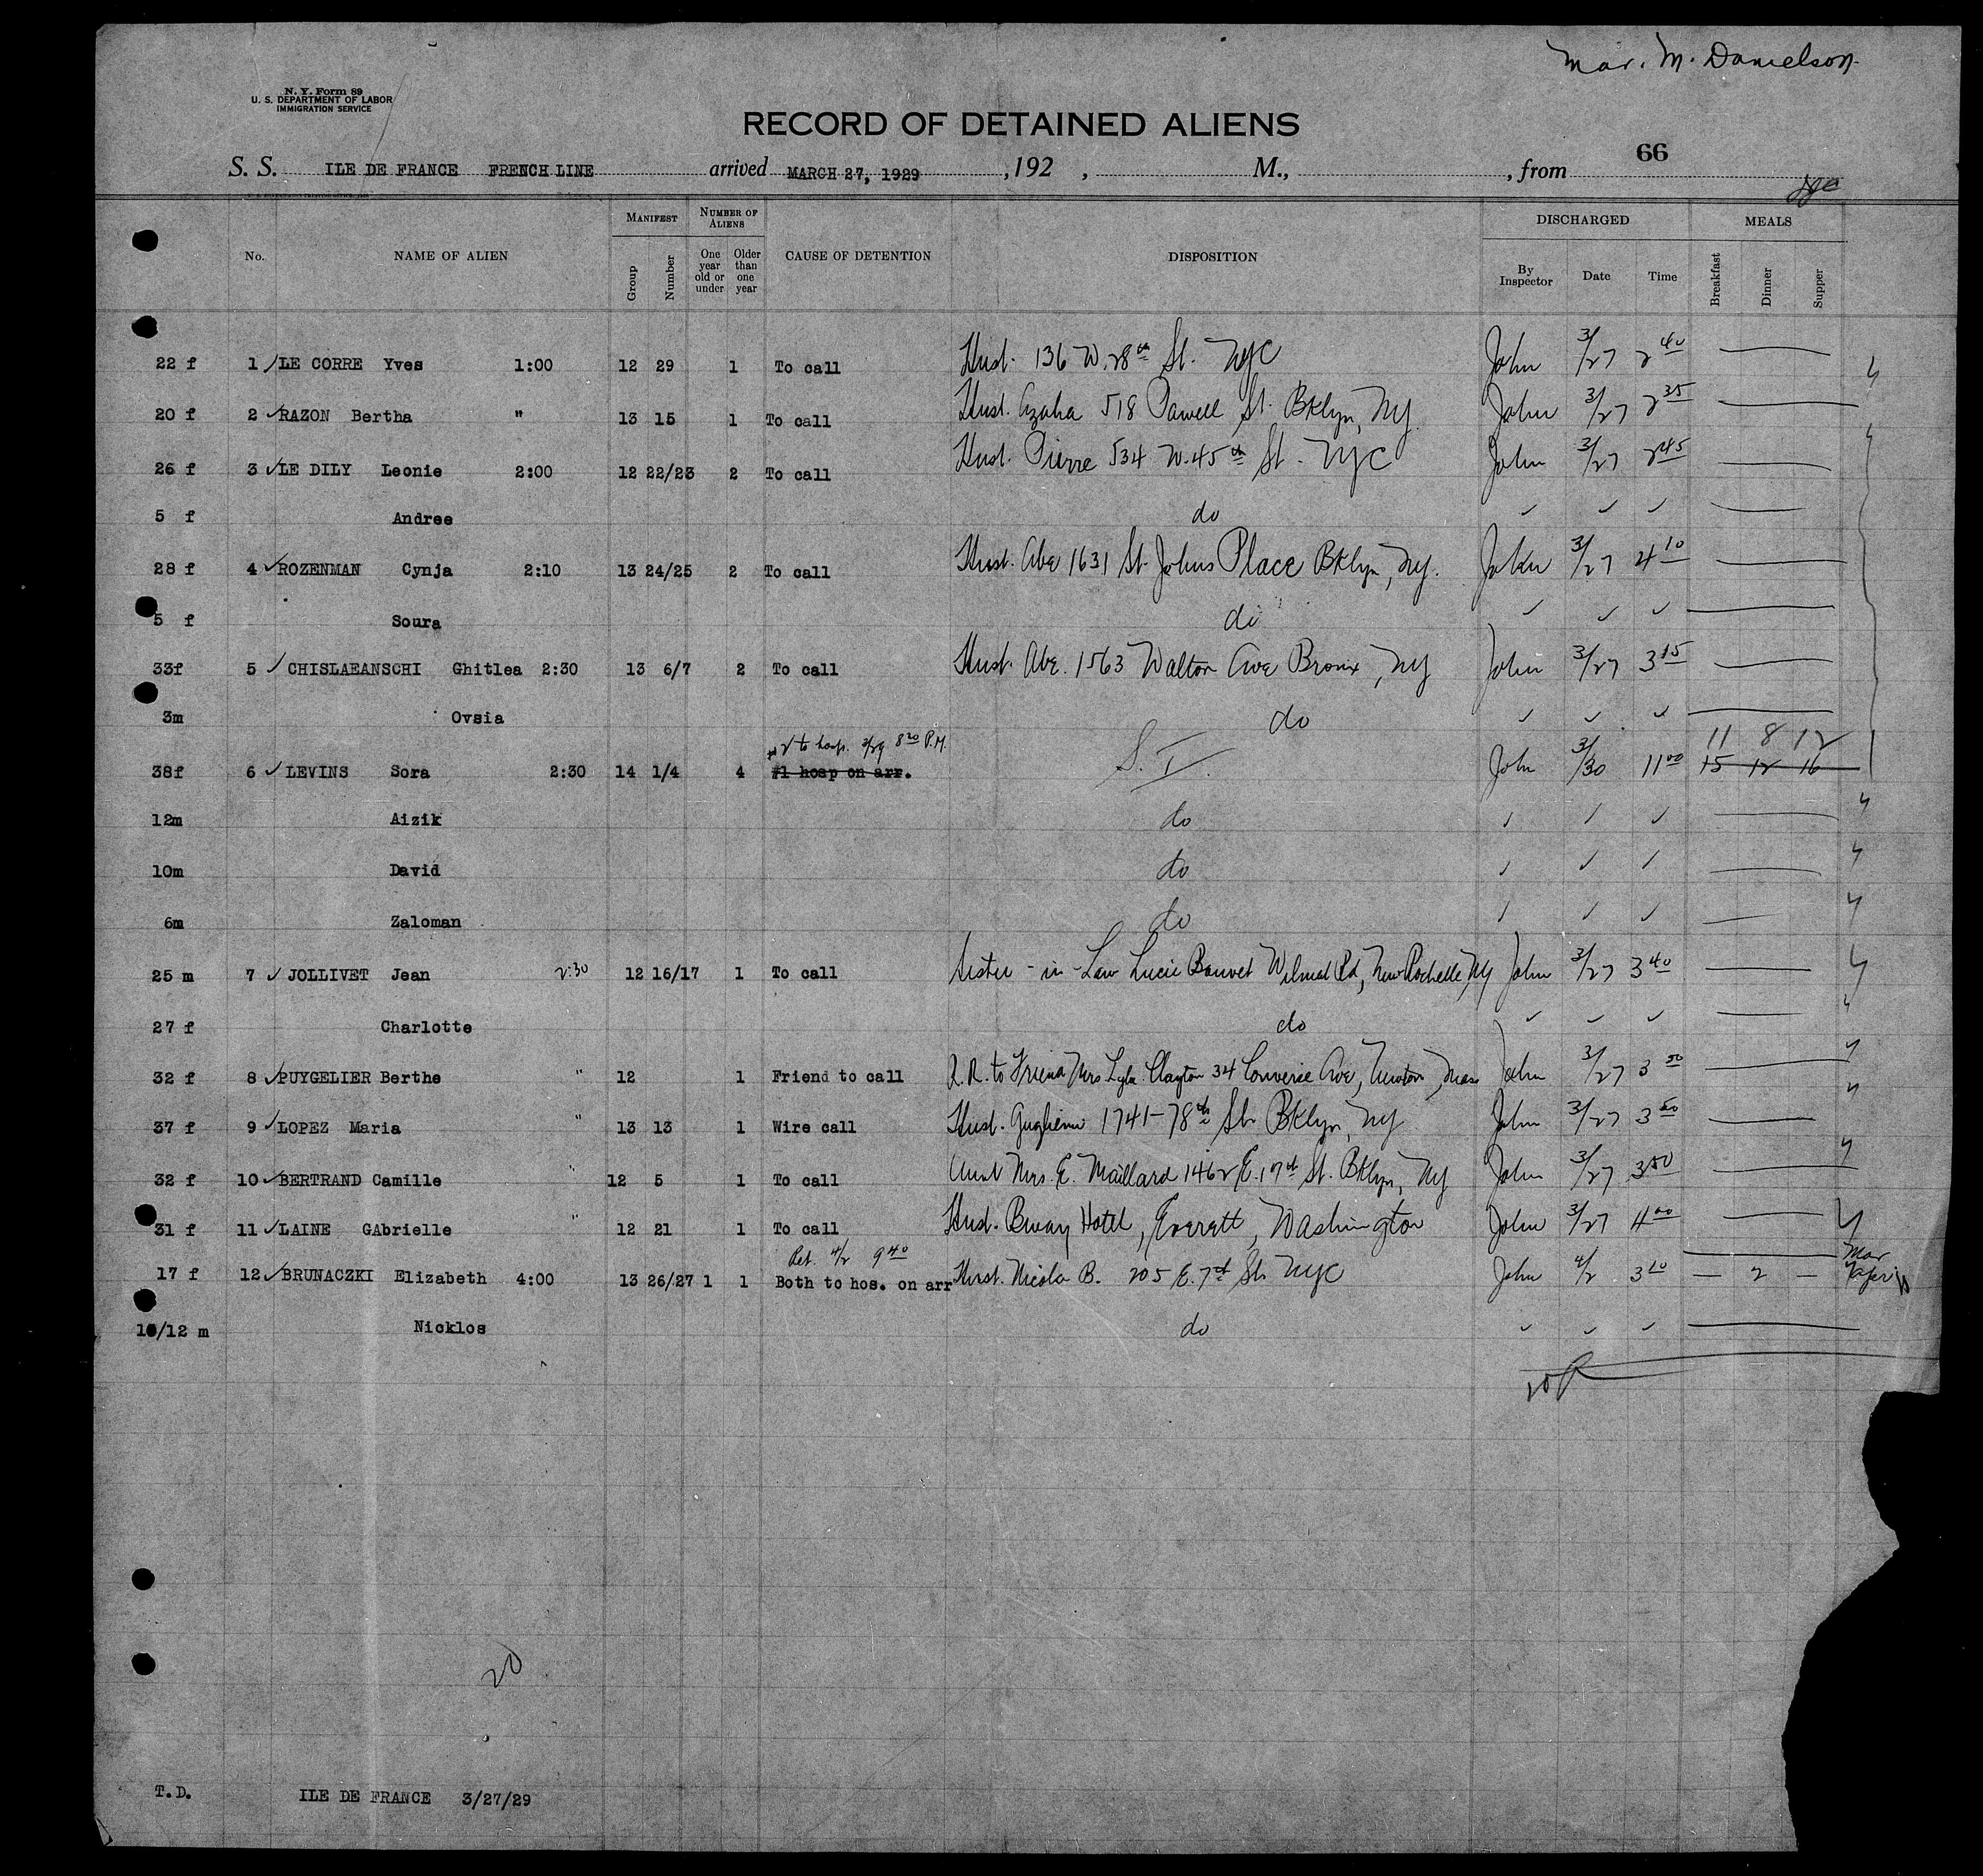 Mar. M. Danielson
N. Y. Form 89
U. S. DEPARTMENT OF LABOR
IMMIGRATION SERVICE
RECORD OF DETAINED ALIENS
66
S. S. ILE DE FRANCE FRENCH LINE arrived MARCH 27, 1929 , 192 , M., , from
No. NAME OF ALIEN MANIFEST Group Number NUMBER OF ALIENS One year old or under Older than one year CAUSE OF DETENTION DISPOSITION DISCHARGED By Inspector Date Time MEALS Breakfast Dinner Supper
22 f 1 ✓ LE CORRE Yves 1:00 12 29 1 To call Hust. 136 W. 28th St. NYC John 3/27 2 40
20 f 2 ✓ RAZON Bertha " 13 15 1 To call Hust. 518 Powell St. Bklyn, NY John 3/27 2 35
26 f 3 ✓ LE DILY Leonie 2:00 12 22/23 2 To call Hust. Pierre 534 W. 45th St. NYC John 3/27 2 45
5 f Andree do ✓ ✓ ✓
28 f 4 ✓ ROZENMAN Cynja 2:10 13 24/25 2 To call Hust. Abe 1631 St. Johns Place Bklyn, NY. John 3/27 4 10
5 f Soura do ✓ ✓ ✓
33f 5 ✓ CHISLAEANSCHI Ghitlea 2:30 13 6/7 2 To call Hust. Abe. 1563 Walton Ave Bronx, NY John 3/27 3 15
3m Ovsia do ✓ ✓ ✓
to hosp. 3/29 8 20 P.M. 11 8 12
38f 6 ✓ LEVINS Sora 2:30 14 1/4 4 #1 hosp on arr. S. I. John 3/30 11 00 15 12 16
12m Aizik do ✓ ✓ ✓
10m David do ✓ ✓ ✓
6m Zaloman do ✓ ✓ ✓
25 m 7 ✓ JOLLIVET Jean 2:30 12 16/17 1 To call Sister-in-Law Lucie Bouvet Wilmot Rd, New Rochelle, NY John 3/27 3 40
27 f Charlotte do ✓ ✓ ✓
32 f 8 ✓ PUYGELIER Berthe " 12 1 Friend to call R. R. to Friend Mrs Lyla Clayton 34 Converse Ave, Newton, Mass John 3/27 3 50
37 f 9 ✓ LOPEZ Maria " 13 13 1 Wire call Hust. 1741-78th St. Bklyn, NY John 3/27 3 50
32 f 10 ✓ BERTRAND Camille " 12 5 1 To call Aunt Mrs. E. Maillard 1462 E. 17th St. Bklyn, NY John 3/27 3 50
31 f 11 ✓ LAINE GAbrielle " 12 21 1 To call Hust. Bway Hotel, Everett, Washington John 3/27 4 00
Ret. 4/2 9 40
17 f 12 ✓ BRUNACZKI Elizabeth 4:00 13 26/27 1 1 Both to hos. on arr Hust. Nicola B. 205 E. 7th St. NYC John 4/2 3 10 — 2 —
10/12 m Nicklos do ✓ ✓ ✓
20
T.D. ILE DE FRANCE 3/27/29